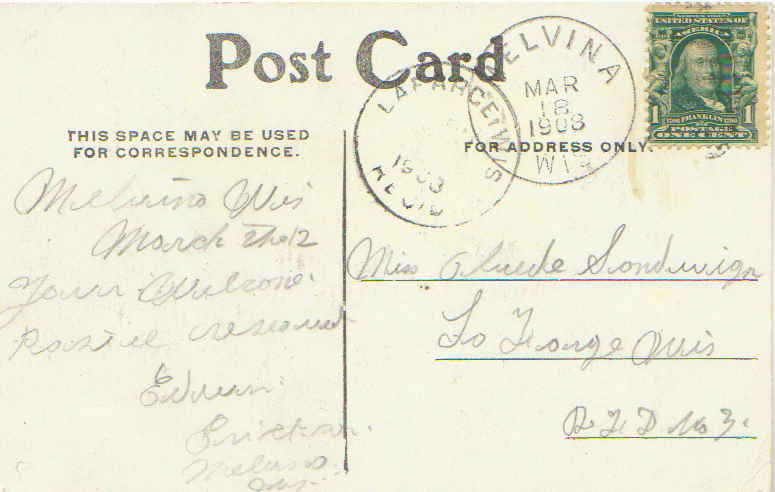 Post Card
THIS SPACE MAY BE USED
FOR CORRESPONDENCE.
FOR ADDRESS ONLY.
MELVINA
MAR
18
1908
WIS
LAFARGE, WIS
1908
REC'D
UNITED STATES OF
AMERICA
1706 FRANKLIN 1790
1 1
POSTAGE
ONE CENT
Melvina Wis
March the 12
Your Welcome
Postal
Miss Sondwign
La Farge Wis
R F D No 3.
Melvina
Wis